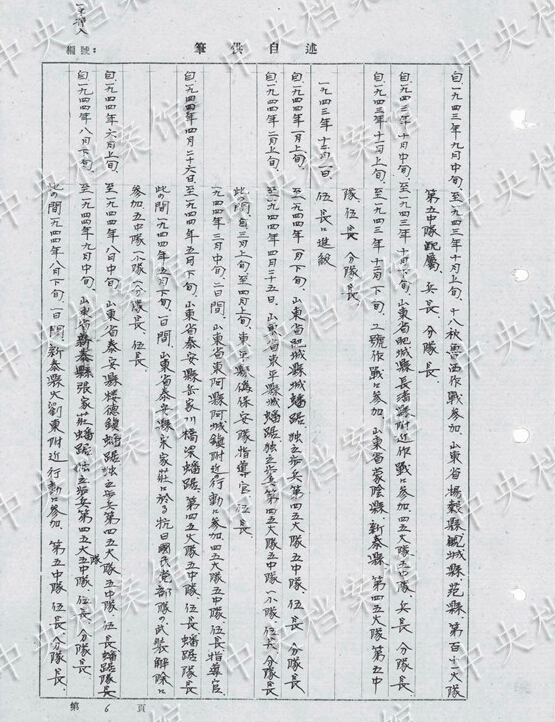 筆供自述
編號：
自、一九四三年九月中旬、至一九四三年十月上旬、十八秋魯西作戰参加、山東省陽穀縣、觀城縣、范縣、第百十一大隊
第五中隊配屬、兵長、分隊長、
自、一九四三年十月中旬、至一九四三年十月下旬、山東省肥城縣長清縣附近作戰に参加、四五大隊五中隊、兵長、分隊長、
自、一九四三年十一月上旬、至一九四三年十二月下旬、二號作戰に参加、山東省蒙陰縣、新泰縣、第四五大隊第五中
隊、伍長、分隊長、
一九四三年十二月一日、伍長に進級
自、一九四四年一月上旬、至一九四四年一月下旬、山東省肥城縣縣城蟠踞、独立歩兵第四五大隊五中隊、伍長、分隊長
自、一九四四年二月上旬、至一九四四年四月二十五日、山東省東平縣縣城蟠踞、独立歩兵第四五大隊一小隊、伍長、分隊長
此の間自三月上旬、至四月上旬、東平縣偽保安隊指導官、伍長、
一九四四年三月中旬、二日間、山東省東阿縣阿城鎮附近行動に参加四五大隊五中隊伍長指導官、
自、一九四四年四月二十六日至一九四四年五月下旬、山東省泰安縣岳家川橋梁蟠踞、第四五大隊五中隊、伍長蟠踞隊長
此の間一九四四年五月下旬、一日間、山東省泰安縣家莊に於る抗日國民党部隊の武装解除に
参加、五中隊小隊（分隊長、伍長、
自、一九四四年六月上旬、至一九四四年八月中旬、山東省泰安縣樓德鎮蟠踞独立歩兵第四五大隊五中隊、伍長蟠踞隊長
自、一九四四年八月下旬、至一九四四年九月中旬、山東省新泰縣張家莊蟠踞、独立歩兵、第四五大隊五中隊、伍長、分隊長
此の間一九四四年八月下旬、一日間、新泰縣大劉東附近行動に参加、第五中隊、伍長、分隊長、
第 6 頁
中央档案馆
中央档案馆
中央档案馆
中央档案馆